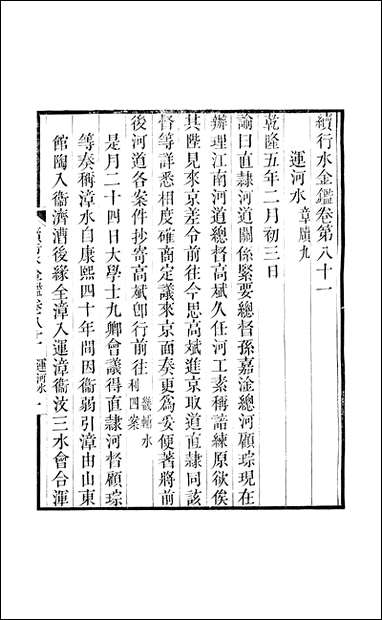 續行水金鑑卷第八十一
運河水 章牘九
乾隆五年二月初三日
諭曰直隸河道關係緊要總督孫嘉淦總河顧琮現在
辦理江南河道總督高斌久任河工素稱諳練原欲俟
其陛見來京差令前往今思高斌進京取道直隸同該
督等詳悉相度確商定議來京面奏更為妥便著將前
後河道各案件抄寄高斌卽行前往 畿輔水利四案
是月二十四日大學士九卿會議得直隸河督顧琮
等奏稱漳水自康熙四十年間因衞弱引漳由山東
館陶入衞濟漕後緣全漳入運漳衞汶三水會合渾
金鑑卷八十一 運河水 一